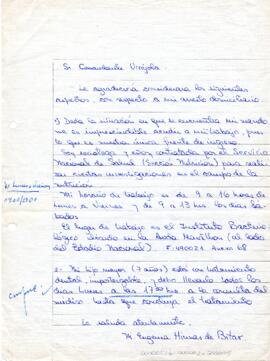 Sr. Comandante Urrízola:
Le agradecería considerara los siguientes
aspectos, con respecto a mi arresto domiciliario:
1) Dada la situación en que se encuentra mi marido
me es imprescindible acudir a mi trabajo, pues
to que es nuestra única fuente de ingreso
Soy socióloga y estoy contratada por el Servicio
Nacional de Salud (Sección Nutrición) para reali
zar ciertas investigaciones en el campo de la
nutrición
Mi horario de trabajo es de 9 a 16 horas de
lunes a Viernes y de 9 a 13 hrs los días sá
bados
El lugar de trabajo en el Instituto Bacterio
lógico situado en la Avda Marathon (al lado
del Estadio Nacional). F. 490021 Anexo 68
2- Mi hija mayor (7 años) está con tratamiento
dental, impostergable, y debo llevarla todos los
días lunes a las 17,30 hrs. a la consulta del
médico hasta que concluya el tratamiento
Le saluda atentamente,
M. Eugenia Hirmas de Bitar